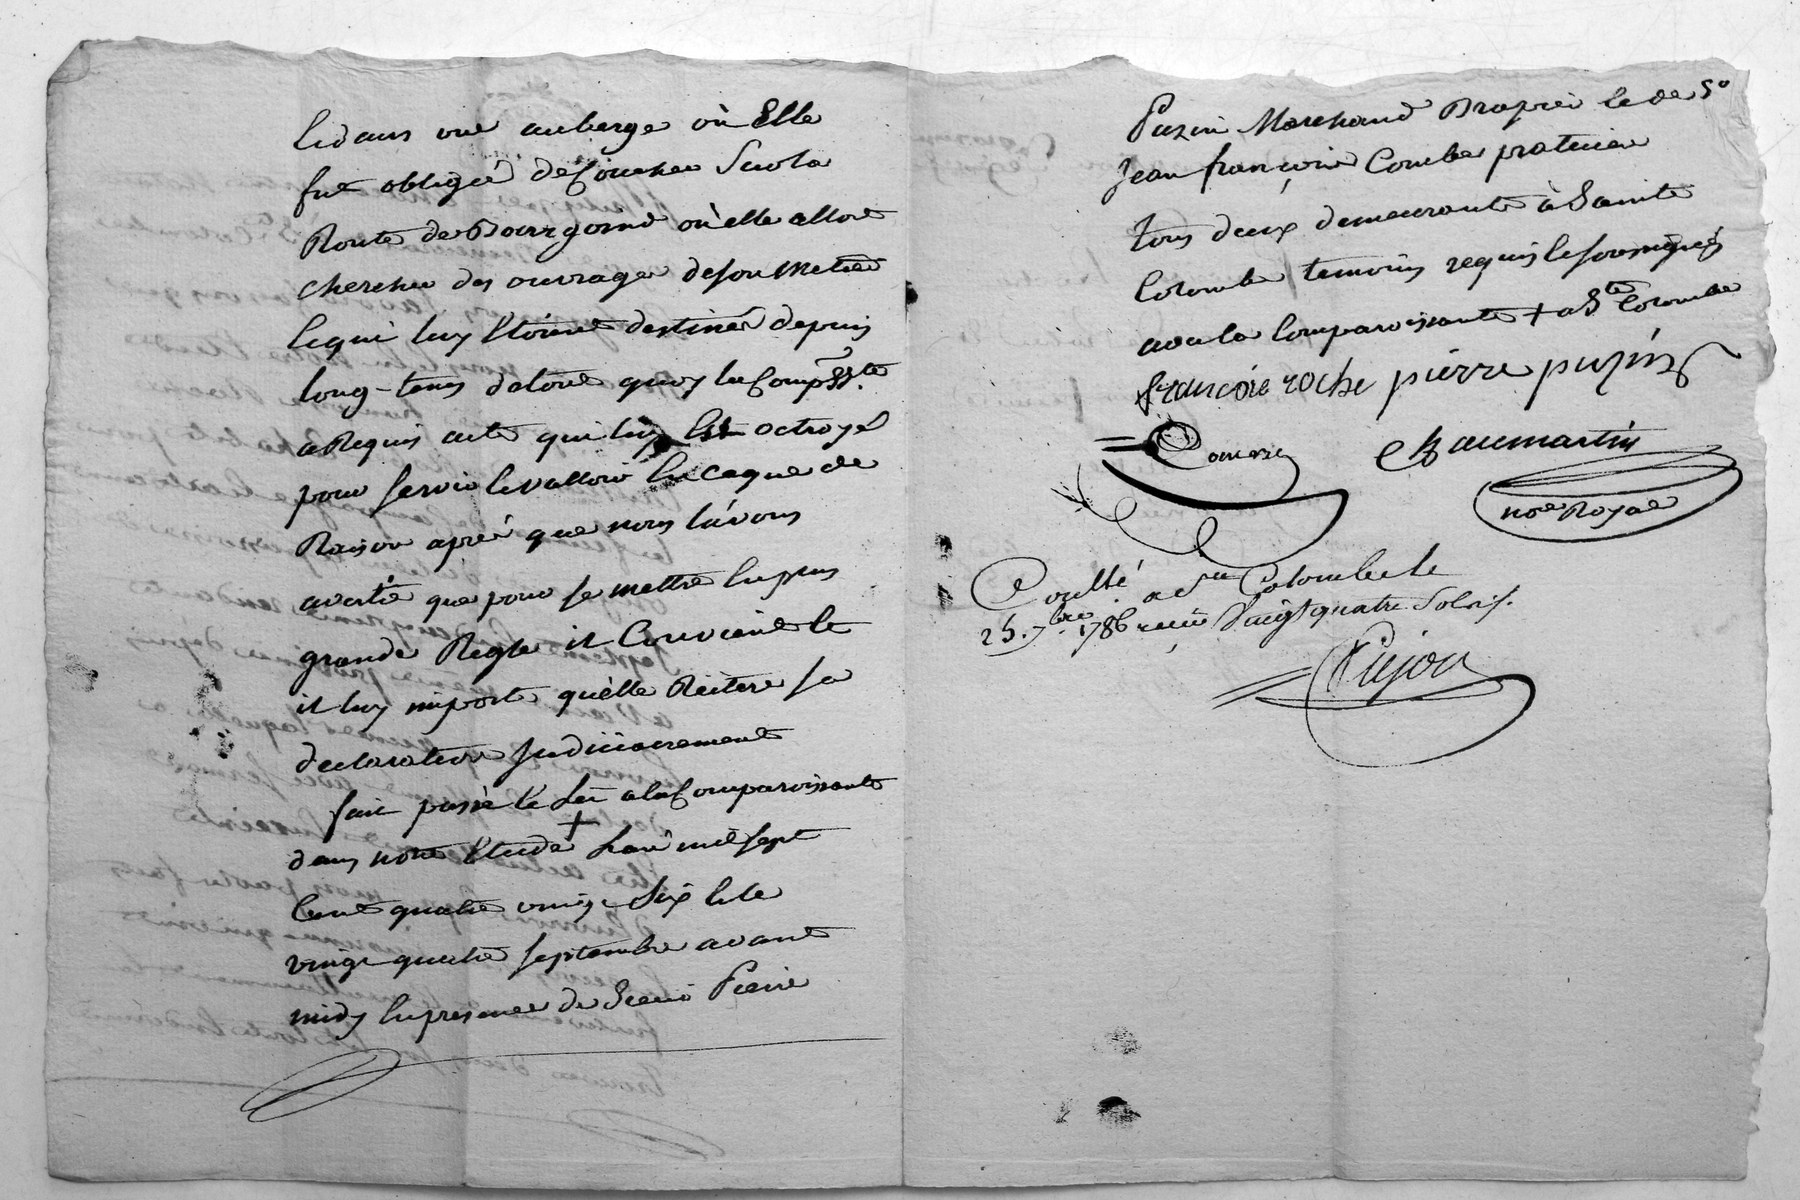 et dans une auberge où Elle
fut obligée de Coucher Sur la
Route de Bourgoind où elle alloit
chercher des ouvrages de son metier
et qui luy Etoient destinés depuis
long-tems de tout quoy la Comp.te
a Requis acte qui luy Est octroyé
pour servir et valloir En cas de
Raison aprés que nous l'avons
avertie que pour se mettre En plus
grande Regle il Convient et
il luy importe qu'elle Réitere sa
declaration Judiciairement
fait passé et Lu a la Comparoissante
dans notre Etude + L'an mil sept
Cent quatre vingt Six et le
vingt quatre septembre avant
midy En presence de Sieur Pierre
Puzin Marchand Drapier et de Sr
Jean françois Combe praticien
tous deux demeurants à Sainte
Colombe temoins requis et soussignés
avec la Comparoissante + a Ste Colombe
francoise roche pierre puzin
Combe Chaumartin
nore Royal
Coullé a Ste Colombe le
25. 7bre 1786 reçu Vingt quatre Sols
Pujon